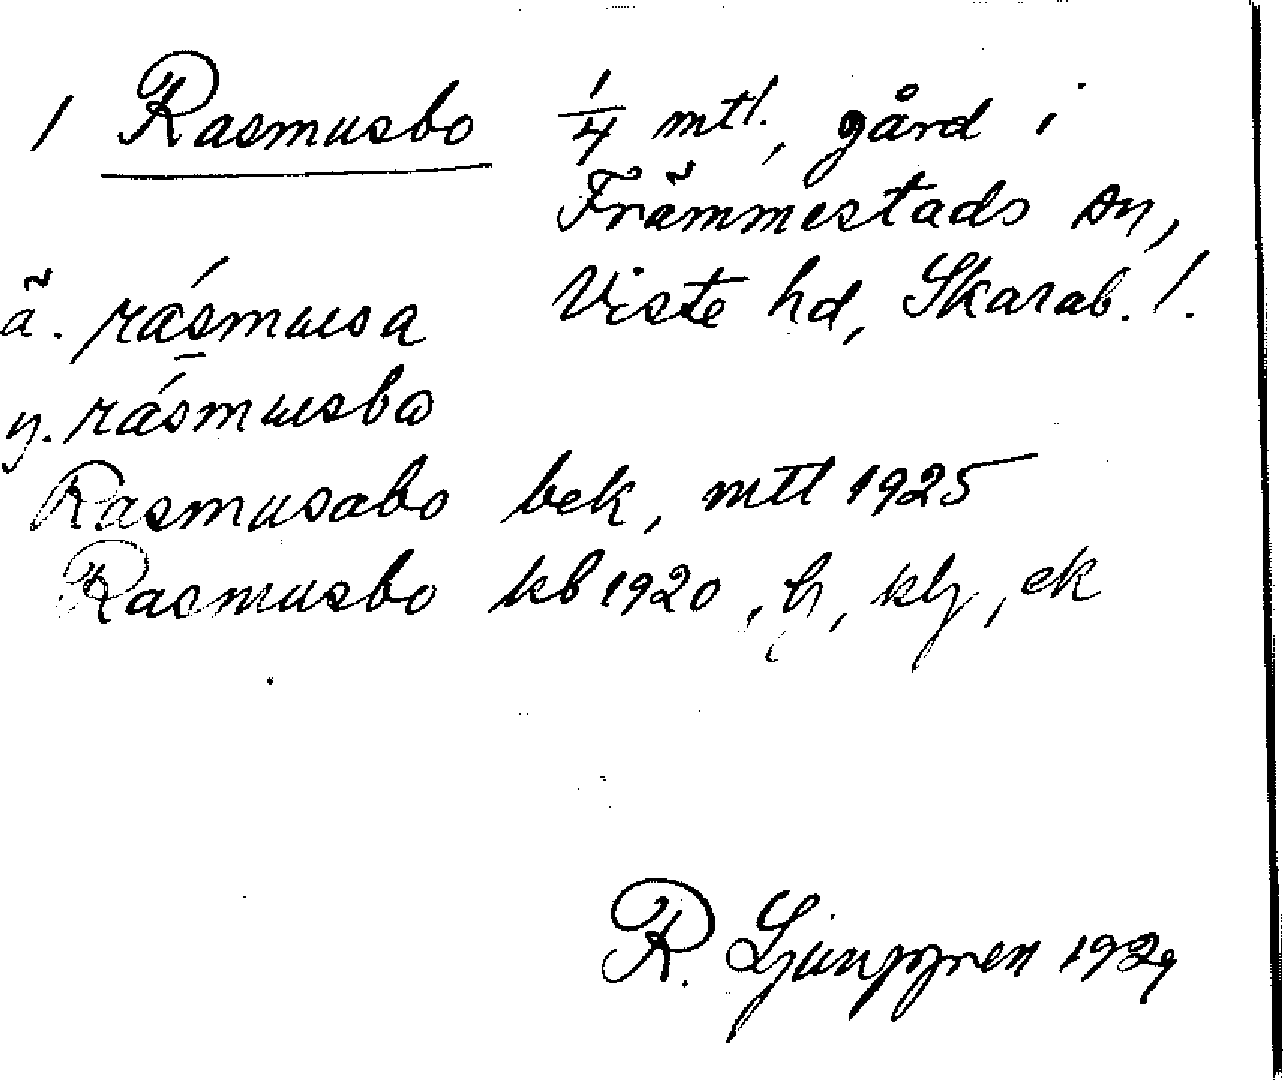 1 Rasmusbo 1/4 mtl., gård i
Främmestads sn,
Viste hd, Skarab. l.
ä. rásmusa
y. rásmusbω
Rasmusabo bek, mtl 1925
Rasmusbo kb 1920, hj, klj, ek
R. Ljunggren 1929